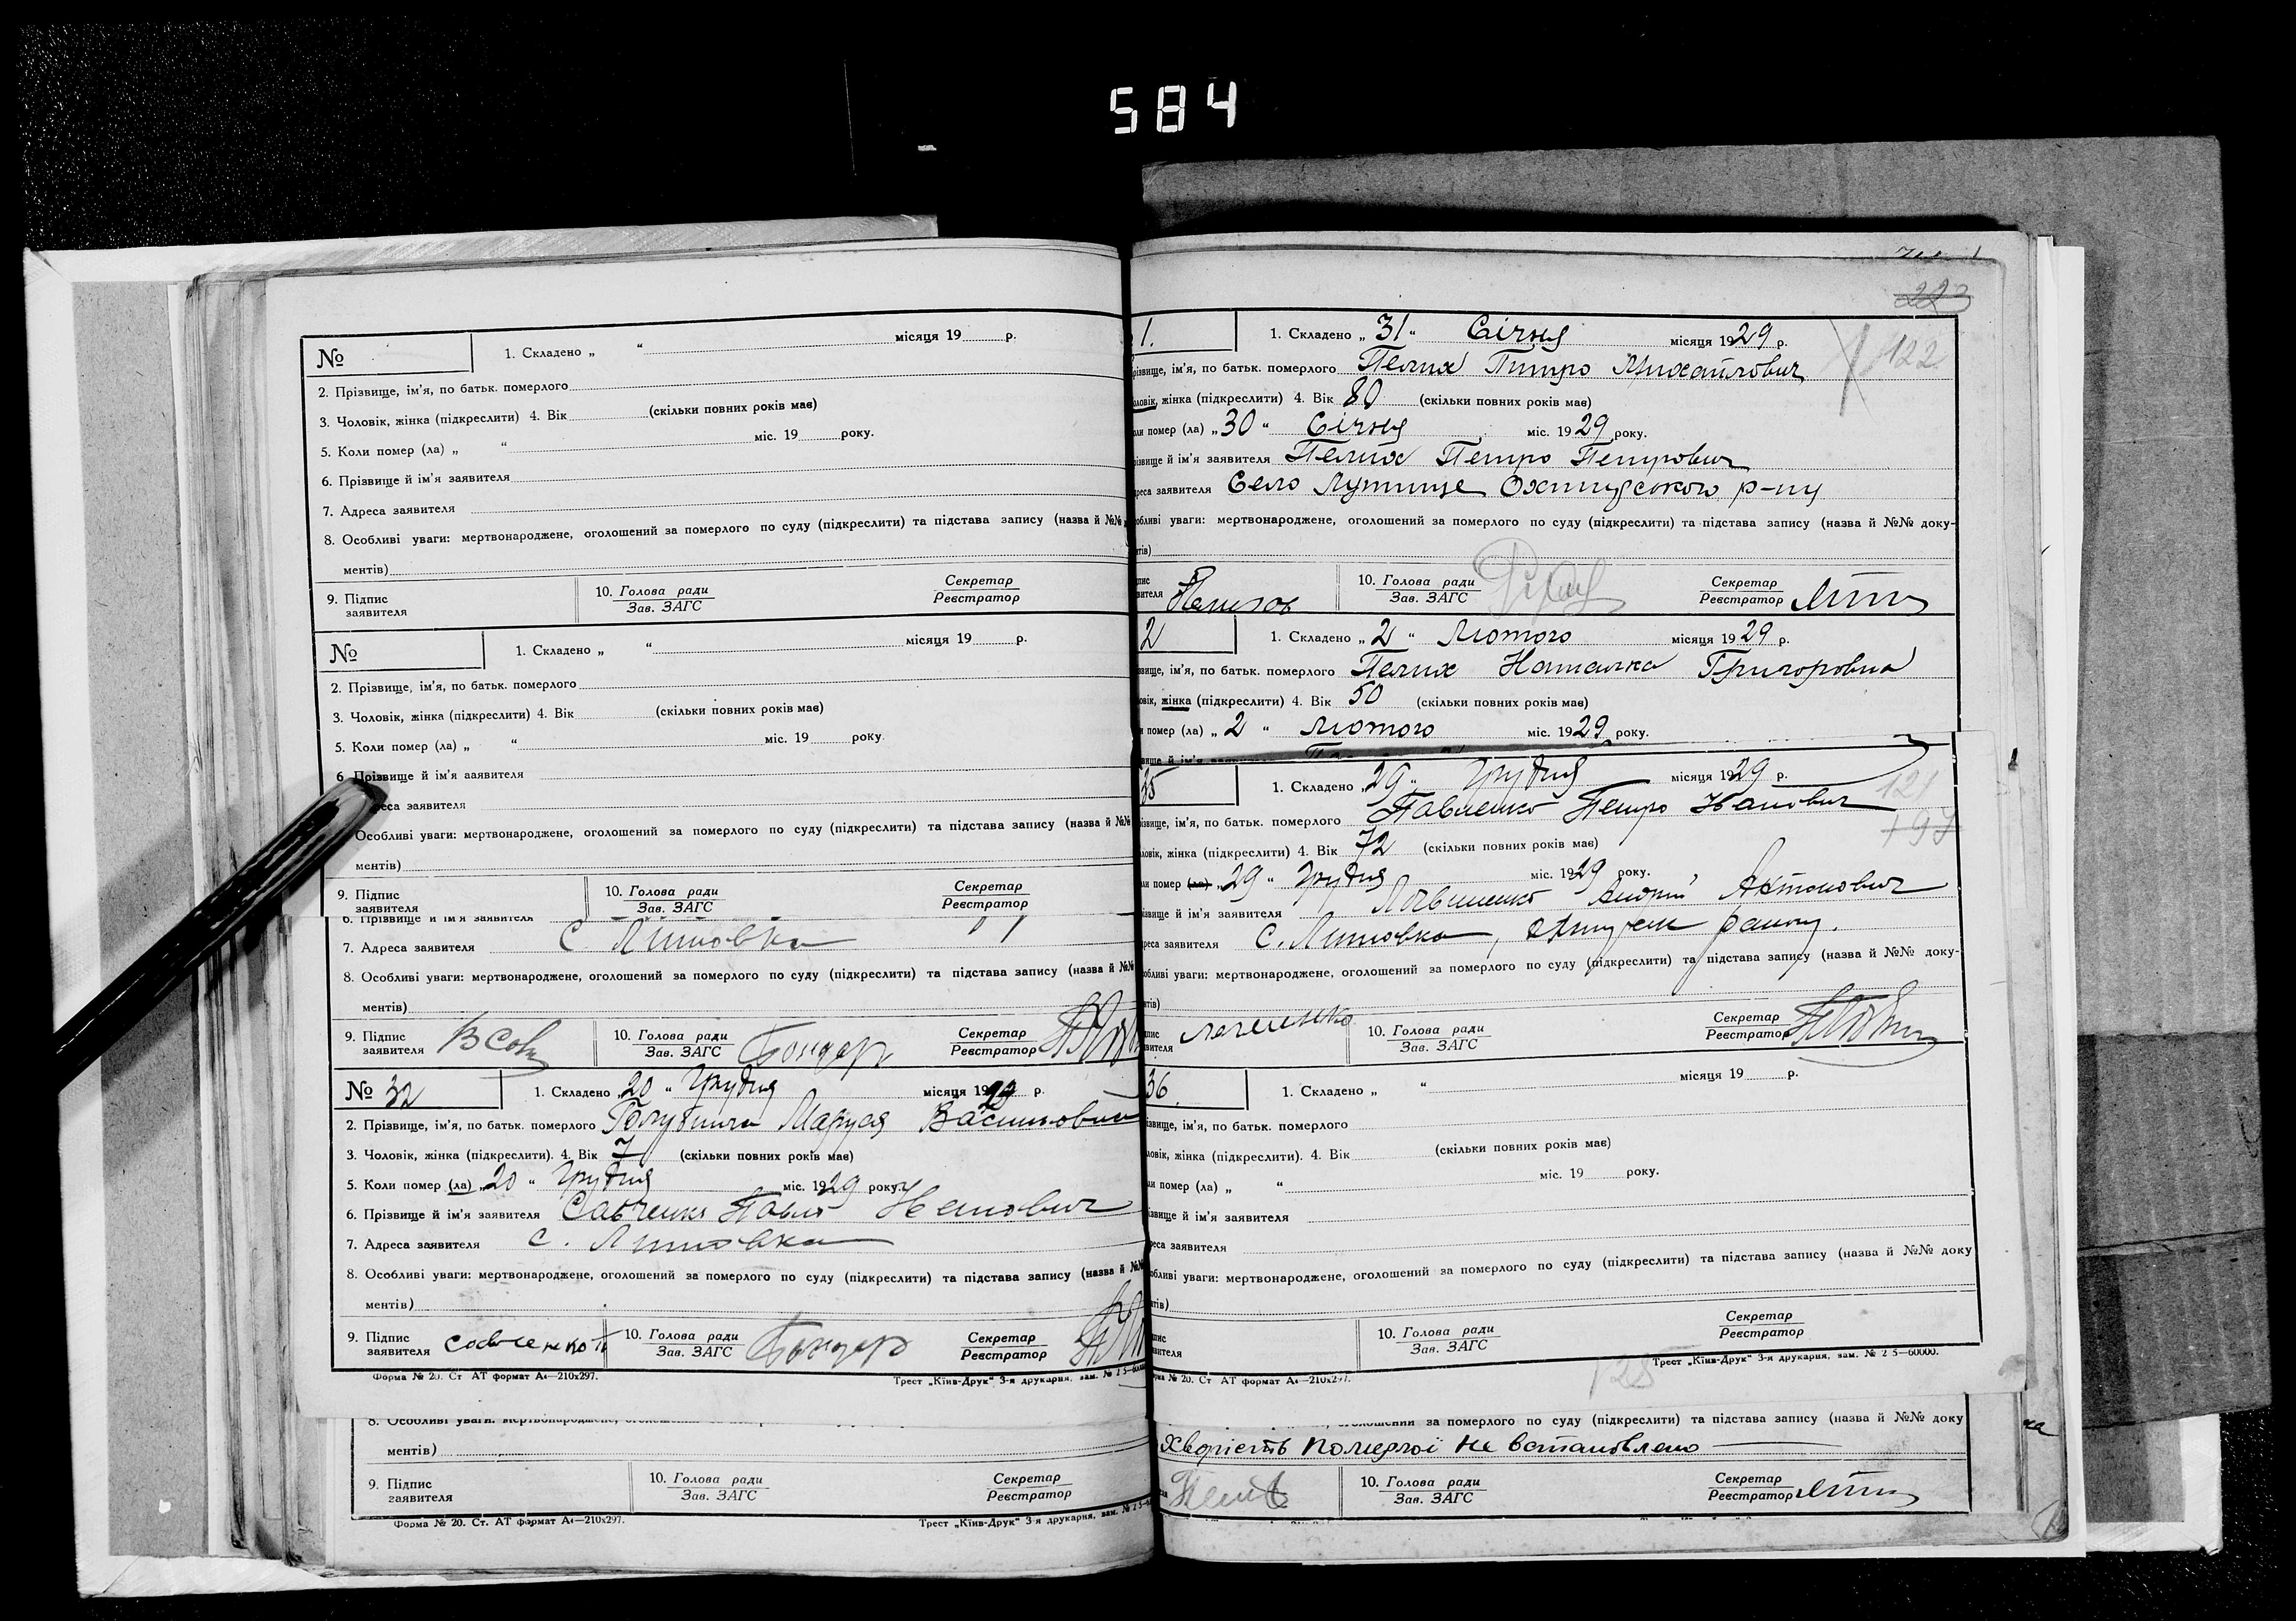 584
№
1. Складено „ “ місяця 19 р.
2. Прізвище, ім'я, по батьк. померлого
3. Чоловік, жінка (підкреслити) 4. Вік (скільки повних років має)
5. Коли помер (ла) „ “ міс. 19 року.
6. Прізвище й ім'я заявителя
7. Адреса заявителя
8. Особливі уваги: мертвонароджене, оголошений за померлого по суду (підкреслити) та підстава запису (назва й №№
ментів)
9. Підпис заявителя
10. Голова ради Зав. ЗАГС
Секретар Реєстратор
№
1. Складено „ “ місяця 19 р.
2. Прізвище, ім'я, по батьк. померлого
3. Чоловік, жінка (підкреслити) 4. Вік (скільки повних років має)
5. Коли помер (ла) „ “ міс. 19 року
6 Прізвище й ім'я заявителя
еса заявителя
Особливі уваги: мертвонароджене, оголошений за померлого по суду (підкреслити) та підстава запису (назва й №№
ментів)
9. Підпис заявителя
10. Голова ради Зав. ЗАГС
Секретар Реєстратор
6. Прізвище й ім'я заявителя
7. Адреса заявителя с. Литовка
8. Особливі уваги: мертвонароджене, оголошений за померлого по суду (підкреслити) та підстава запису (назва й №№
ментів)
9. Підпис заявителя
10. Голова ради Зав. ЗАГС Бондар
Секретар Реєстратор
№ 32
1. Складено „20 “ Грудня місяця 1929 р.
2. Прізвище, ім'я, по батьк. померлого Маруся Василовна
3. Чоловік, жінка (підкреслити). 4. Вік 7 (скільки повних років має)
5. Коли помер (ла) „20 “ Грудня міс. 1929 року.
6. Прізвище й ім'я заявителя Савченко Павло Іванович
7. Адреса заявителя с. Литовка
8. Особливі уваги: мертвонароджене, оголошений за померлого по суду (підкреслити) та підстава запису (назва й №№
ментів)
9. Підпис заявителя савченко п
10. Голова ради Зав. ЗАГС Бондар
Секретар Реєстратор
Форма № 20. Ст АТ формат А4—210х297.
Трест „Київ-Друк“ 3-я друкарня, зам. № 2 5—60000
8. Особливі уваги: мертвонароджене,
ментів)
9. Підпис заявителя
10. Голова ради Зав. ЗАГС
Секретар Реєстратор
Форма № 20. Ст. АТ формат А4—210х297.
Трест „Київ-Друк“ 3-я друкарня, зам. № 2 5
223
122
1.
1. Складено „31“ Січня місяця 1929 р.
різвище, ім'я, по батьк. померлого Пелих Питро Михайлович
оловік, жінка (підкреслити) 4. Вік 80 (скільки повних років має)
ли помер (ла) „30“ Січня міс. 1929 року.
різвище й ім'я заявителя Пелих Петро Петрович
дреса заявителя Село Лутище Охтирського р-ну
обливі уваги: мертвонароджене, оголошений за померлого по суду (підкреслити) та підстава запису (назва й №№ доку-
нтів)
пис вителя
10. Голова ради Зав. ЗАГС
Секретар Реєстратор
2
1. Складено „2“ Лютого місяця 1929 р.
звище, ім'я, по батьк. померлого Пелих Наталка Григоровна
овік, жінка (підкреслити) 4. Вік 50 (скільки повних років має)
и помер (ла) „2“ лютого міс. 1929 року.
35
1. Складено „29“ Грудня місяця 1929 р.
121
197
ізвище, ім'я, по батьк. померлого Павленко Петро Іванович
ловік, жінка (підкреслити) 4. Вік 72 (скільки повних років має)
ли помер (ла) „29“ Грудня міс. 1929 року.
ізвище й ім'я заявителя Андрій Антонович
реса заявителя с. Литовка, району.
обливі уваги: мертвонароджене, оголошений за померлого по суду (підкреслити) та підстава запису (назва й №№ доку-
нтів)
пис вителя
10. Голова ради Зав. ЗАГС
Секретар Реєстратор
36.
1. Складено „ “ місяця 19 р.
ізвище, ім'я, по батьк. померлого
ловік, жінка (підкреслити). 4. Вік (скільки повних років має)
ли помер (ла) „ “ міс. 19 року.
ізвище й ім'я заявителя
реса заявителя
обливі уваги: мертвонароджене, оголошений за померлого по суду (підкреслити) та підстава запису (назва й №№ доку
нтів)
пис вителя
10. Голова ради Зав. ЗАГС
Секретар Реєстратор
рма № 20. Ст АТ формат А4—210х297.
125
Трест „Київ-Друк“ 3-я друкарня, зам. № 2 5—60000.
оголошений за померлого по суду (підкреслити) та підстава запису (назва й №№ доку
Хворість померлої не встановлено
10. Голова ради Зав. ЗАГС
Секретар Реєстратор